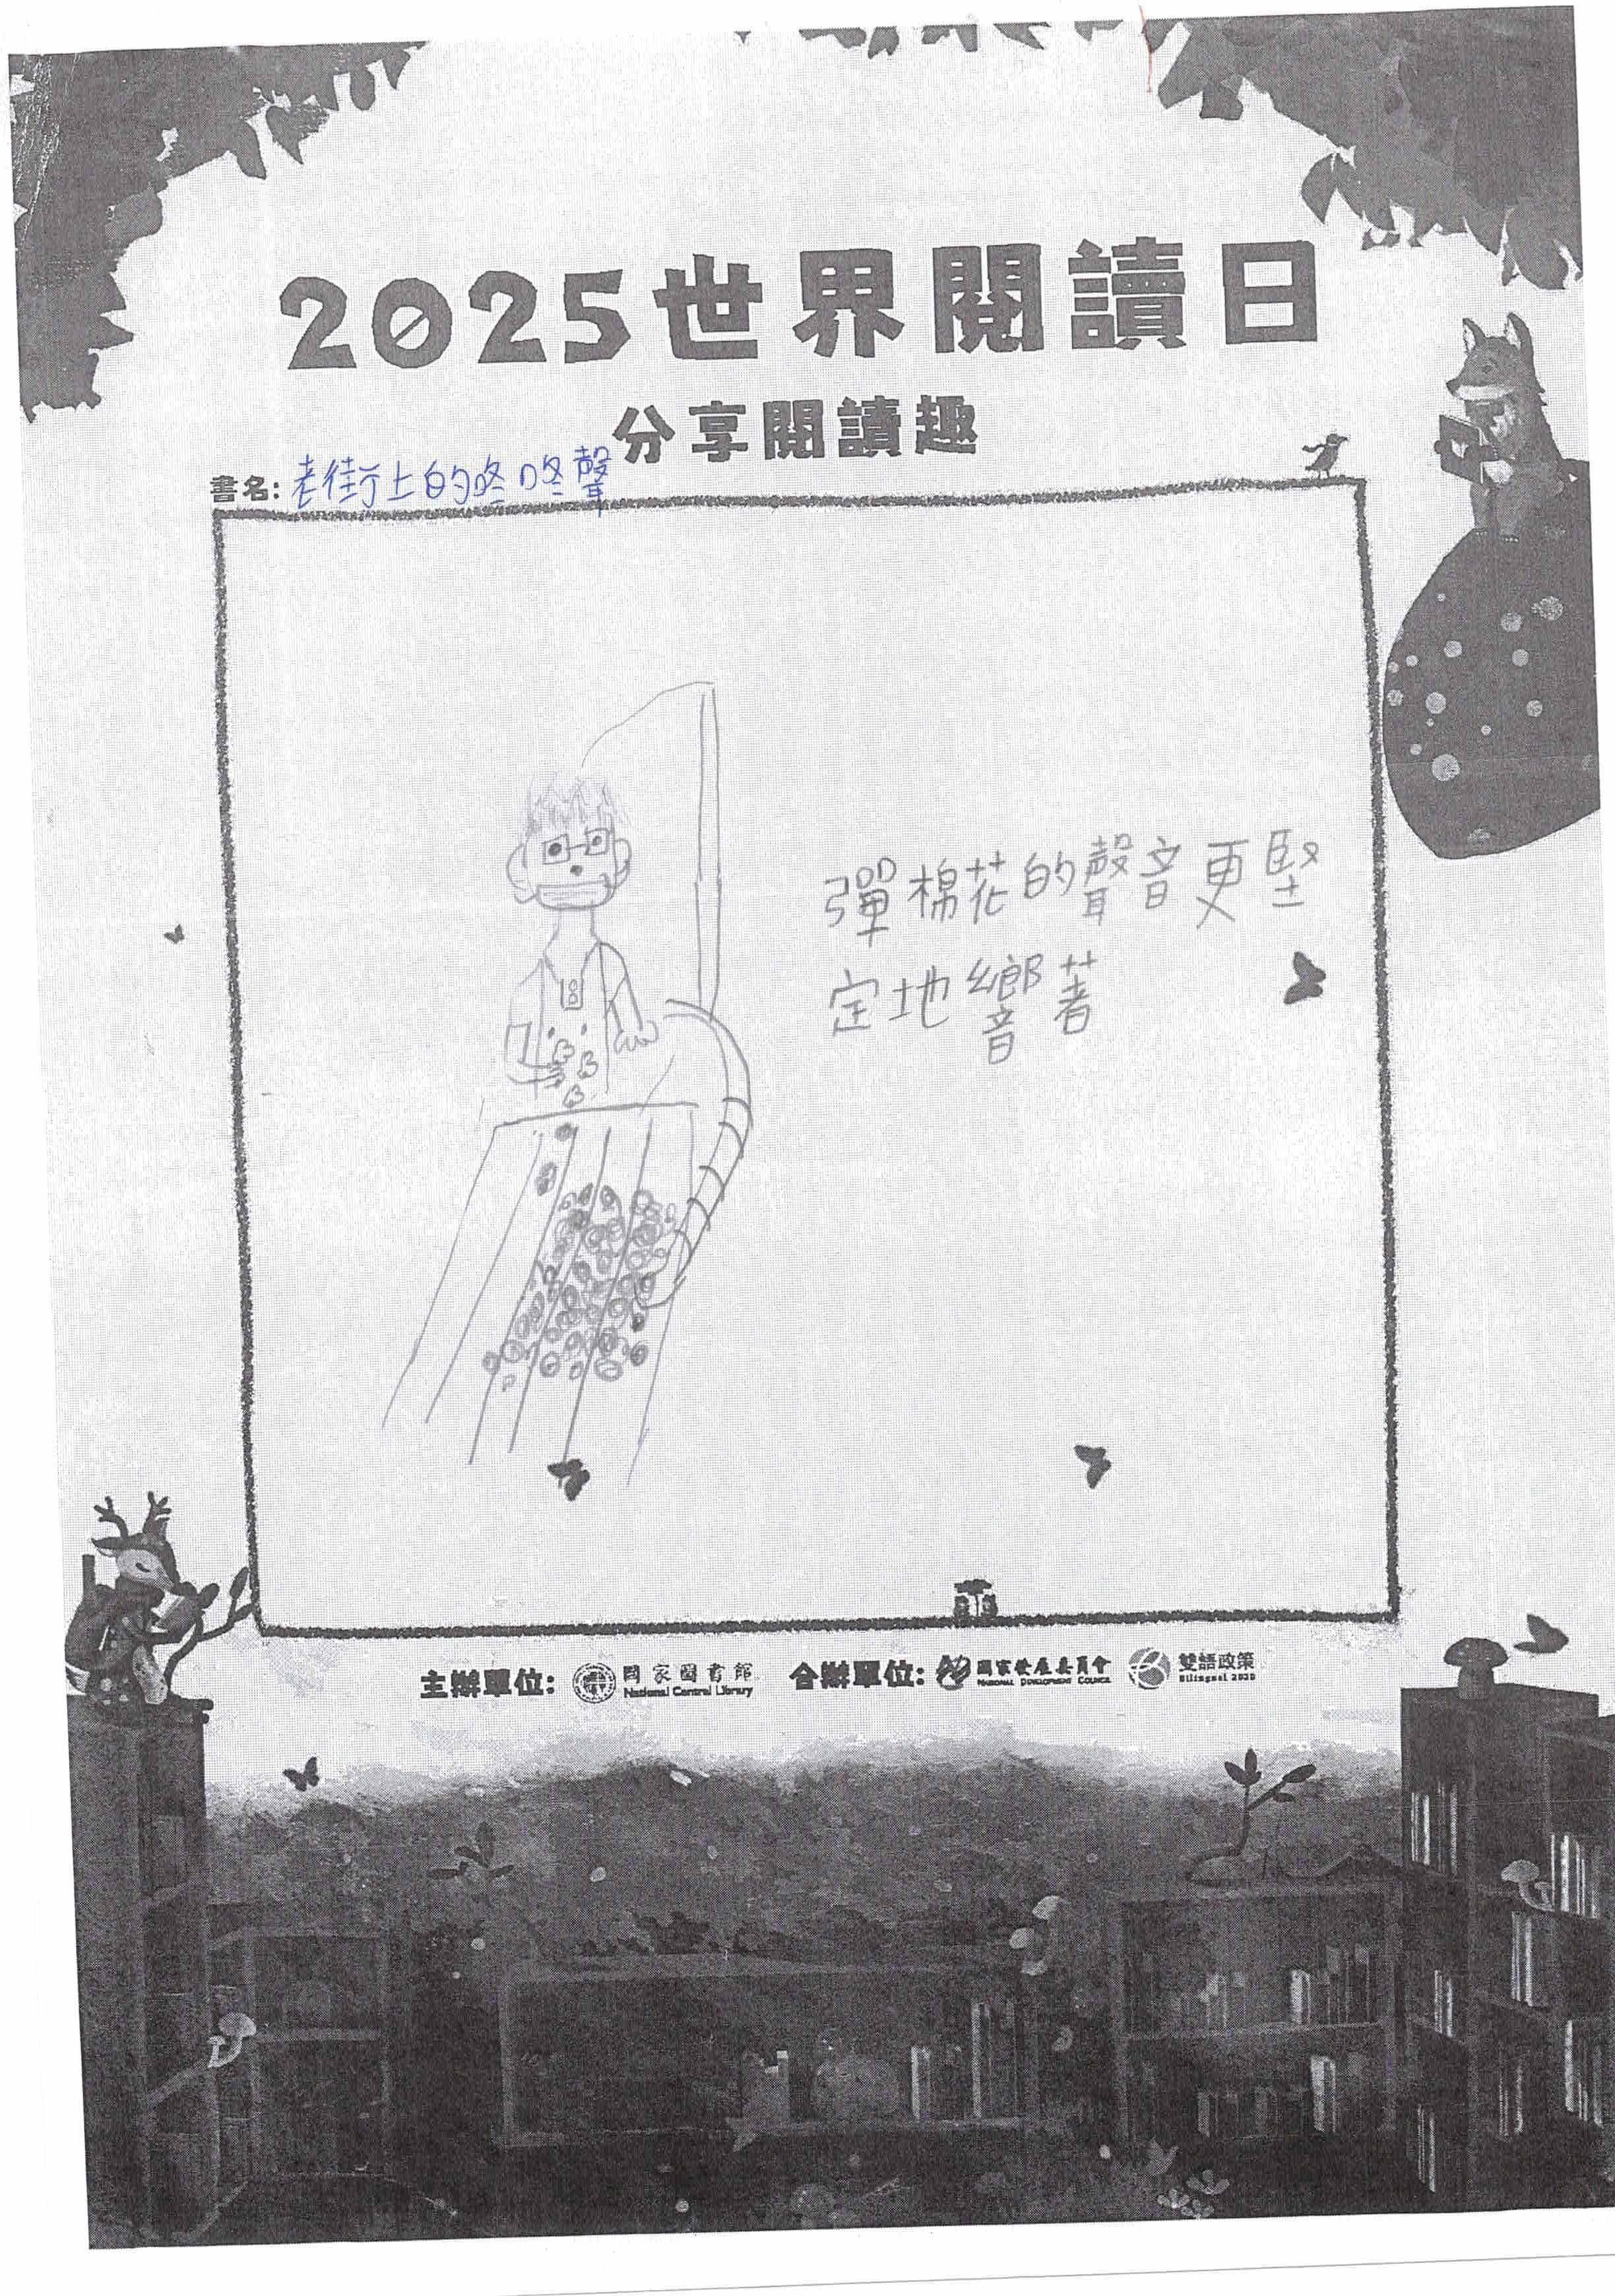 2025世界閱讀日
分享閱讀趣
書名: 老街上的咚咚聲
彈棉花的聲音更堅
定地響著
主辦單位: 國家圖書館 National Central Library 合辦單位: 國家發展委員會 National Development Council 雙語政策 Bilingual 2030